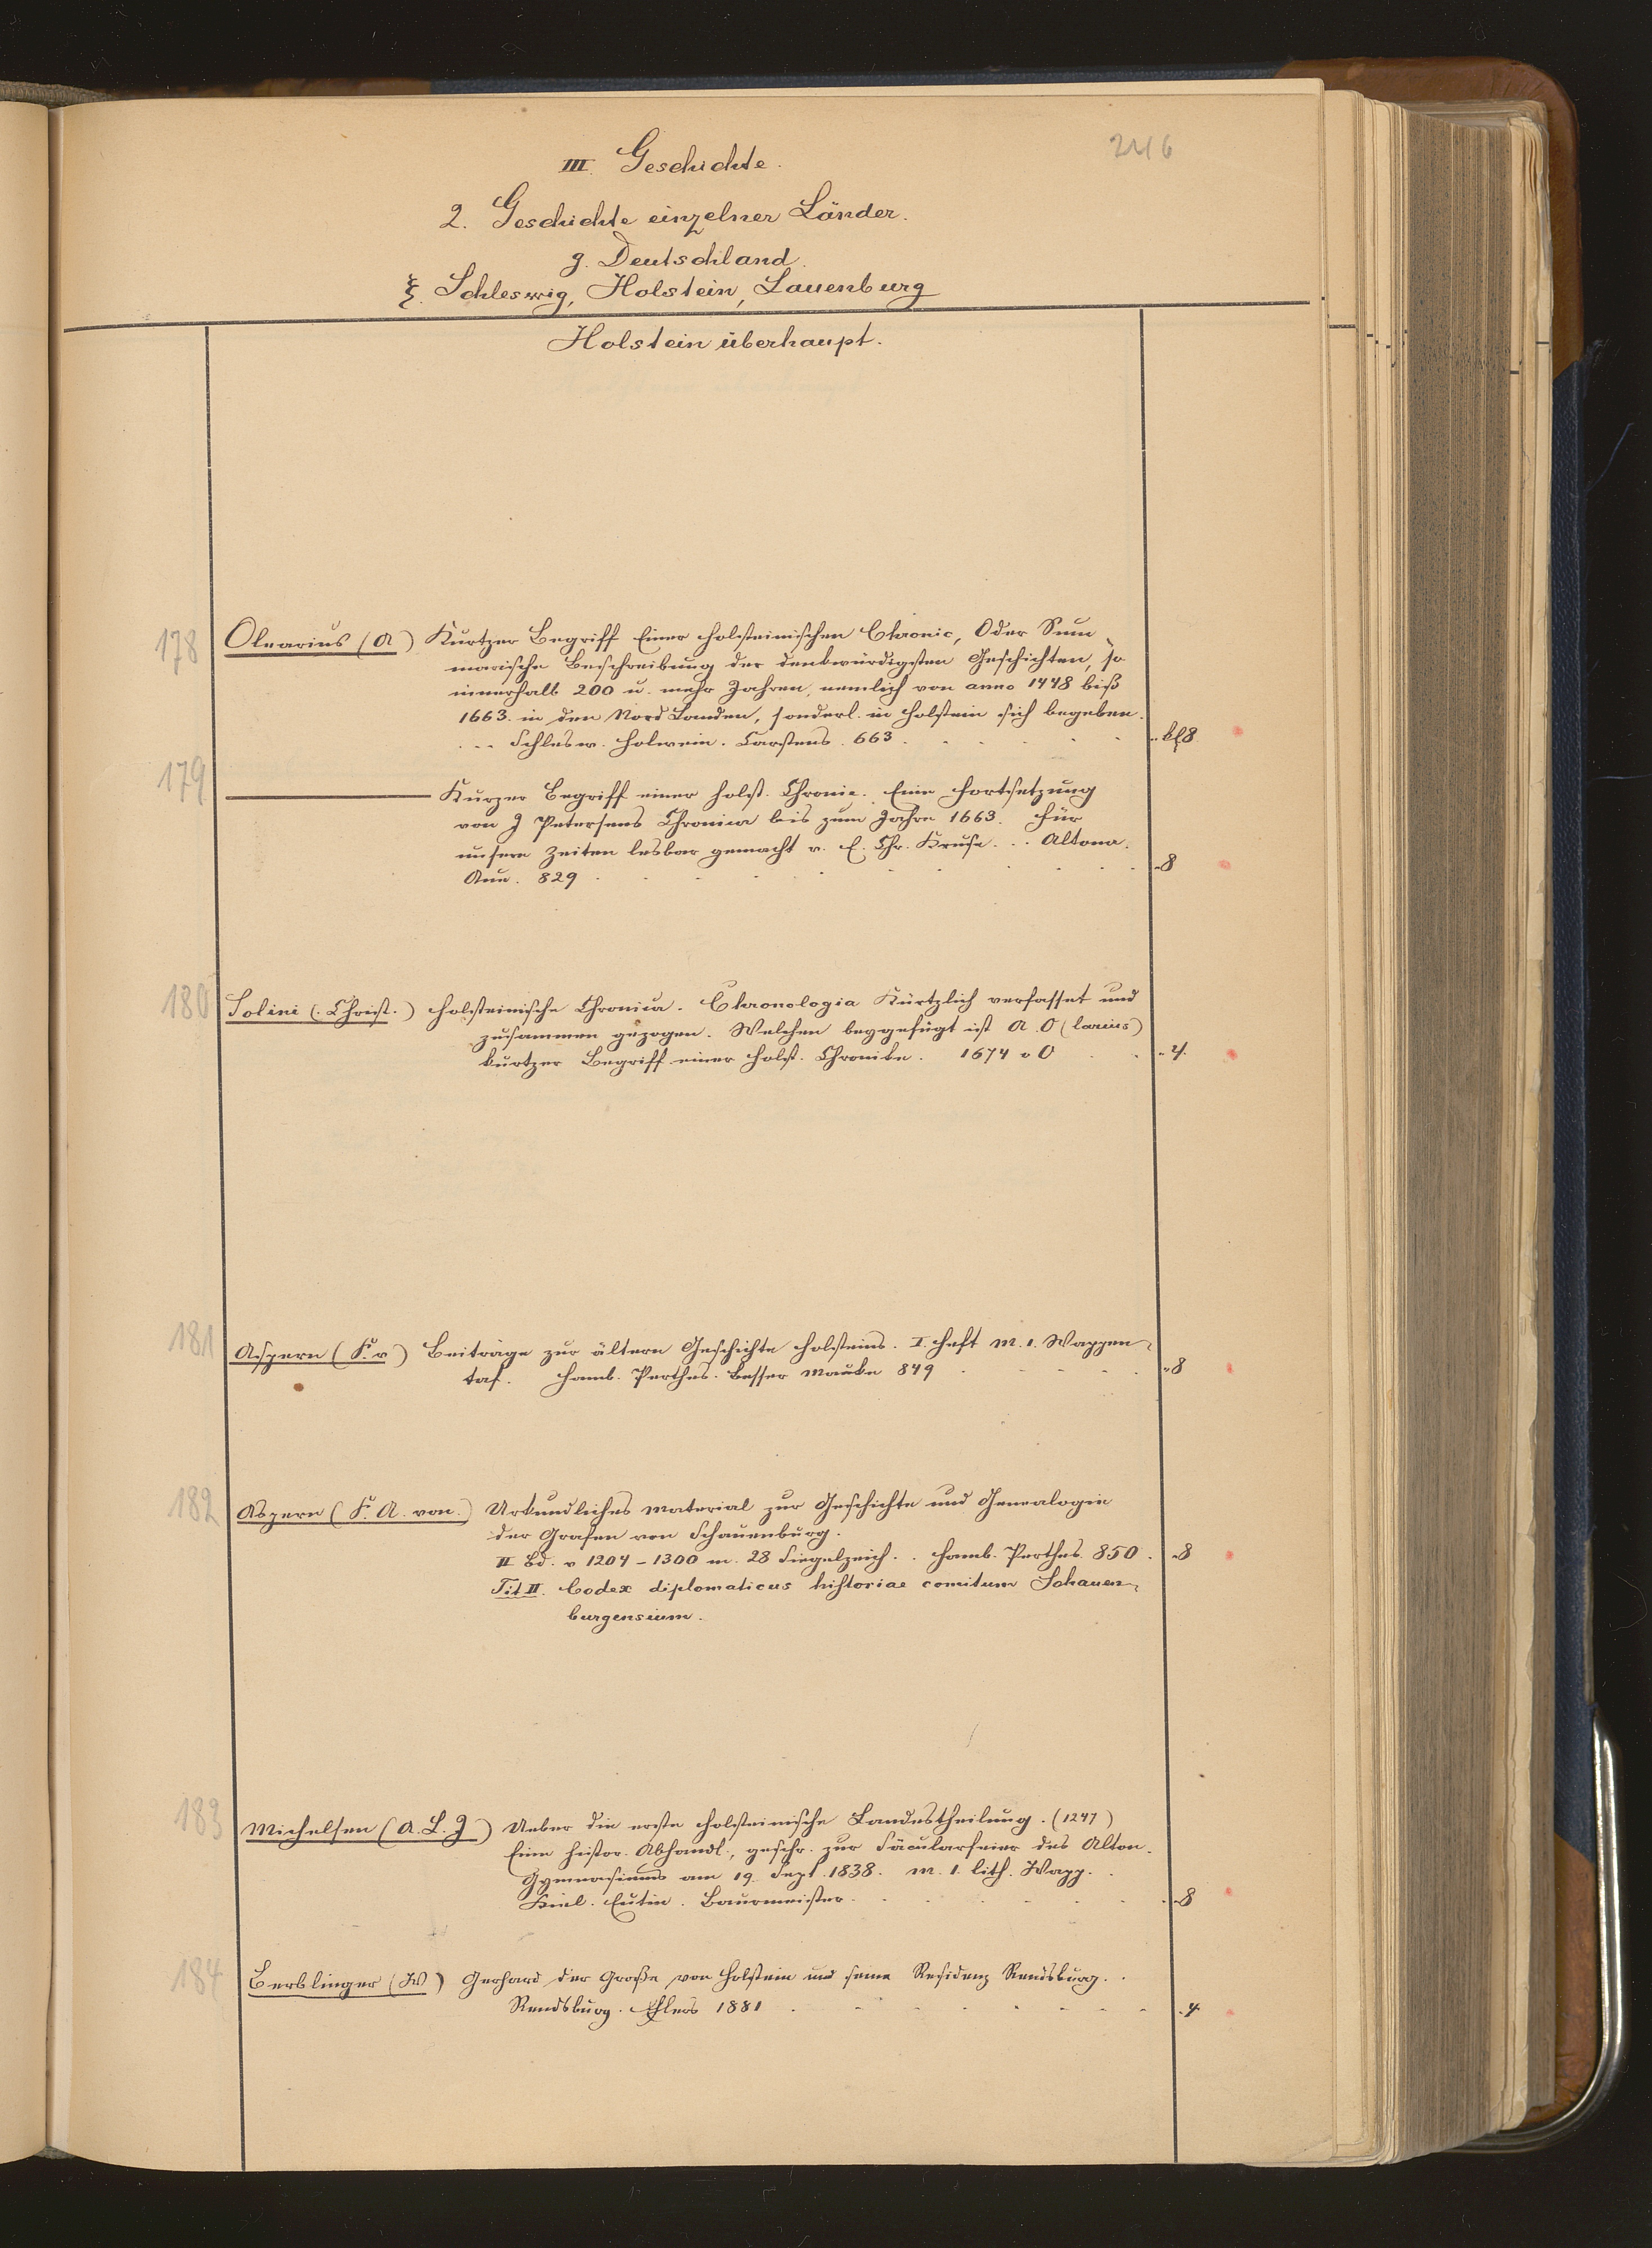 246
III. Geschichte.
2. Geschichte einzelner Länder.
g. Deutschland.
ξ. Schleswig, Holstein, Lauenburg
Holstein überhaupt.
178 Olearius (A) Kurtzer Begriff Einer Holsteinischen Chronic, Oder Sum-
marische Beschreibung der denkwürdigsten Geschichten, so
innerhalb 200 u. mehr Jahren, nemlich von anno 1448 biß
1663. in den Nord Landen, sonderl. in Holstein sich begeben.
... Schlesw. Holwein. Carstens. 663 . . . . . kl8
179 ——— Kurzer Begriff einer Holst. Chronic. Eine Fortsetzung
von J Petersens Chronica bis zum Jahre 1663. Für
unsere Zeiten lesbar gemacht v. E. Chr. Kruse... Altona.
Aue. 829 . . . . . . . . . 8
180 Solini (Christ.) Holsteinische Chronica. Chronologia Kürtzlich verfasset und
zusammen gezogen. Welchen beygefügt ist A. O(learius)
kurtzer Begriff einer Holst. Chronike. 1674 o O . . 4.
181 Aspern (F. v) Beiträge zur ältern Geschichte Holsteins. I. Heft m. 1. Wappen-
taf. Hamb. Perthes. Besser Mauke 849 . . . . . 8
182 Aspern (F. A. von.) Urkundliches Material zur Geschichte und Genealogie
der Grafen von Schauenburg.
II Bd. v 1204-1300 m. 28 Siegelzeich. . Hamb. Perthes. 850. 8
Tit II. Codex diplomaticus historiae comitum Schauen-
burgensium.
183 Michelsen (A. L. J) Ueber die erste Holsteinische Landestheilung. (1247)
Eine histor. Abhandl., geschr. zur Säcularfeier des Alton.
Gymnasiums am 19. Sept. 1838. m. 1. lith. Wapp. .
Kiel. Eutin. Baurmeister. . . . . . . 8
184 Berblinger (W) Gerhard der Große von Holstein und seine Residenz Rendsburg. .
Rendsburg. Ehlers 1881 . . . . . . . 4